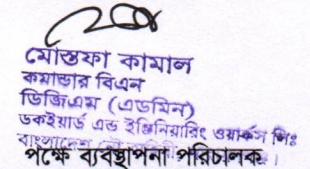 মোস্তফা কামাল
কমান্ডার বিএন
ডিজিএম (এডমিন)
ডকইয়ার্ড এন্ড ইঞ্জিনিয়ারিং ওয়ার্কস লিঃ
বাংলাদেশ নৌ
পক্ষে ব্যবস্থাপনা পরিচালক